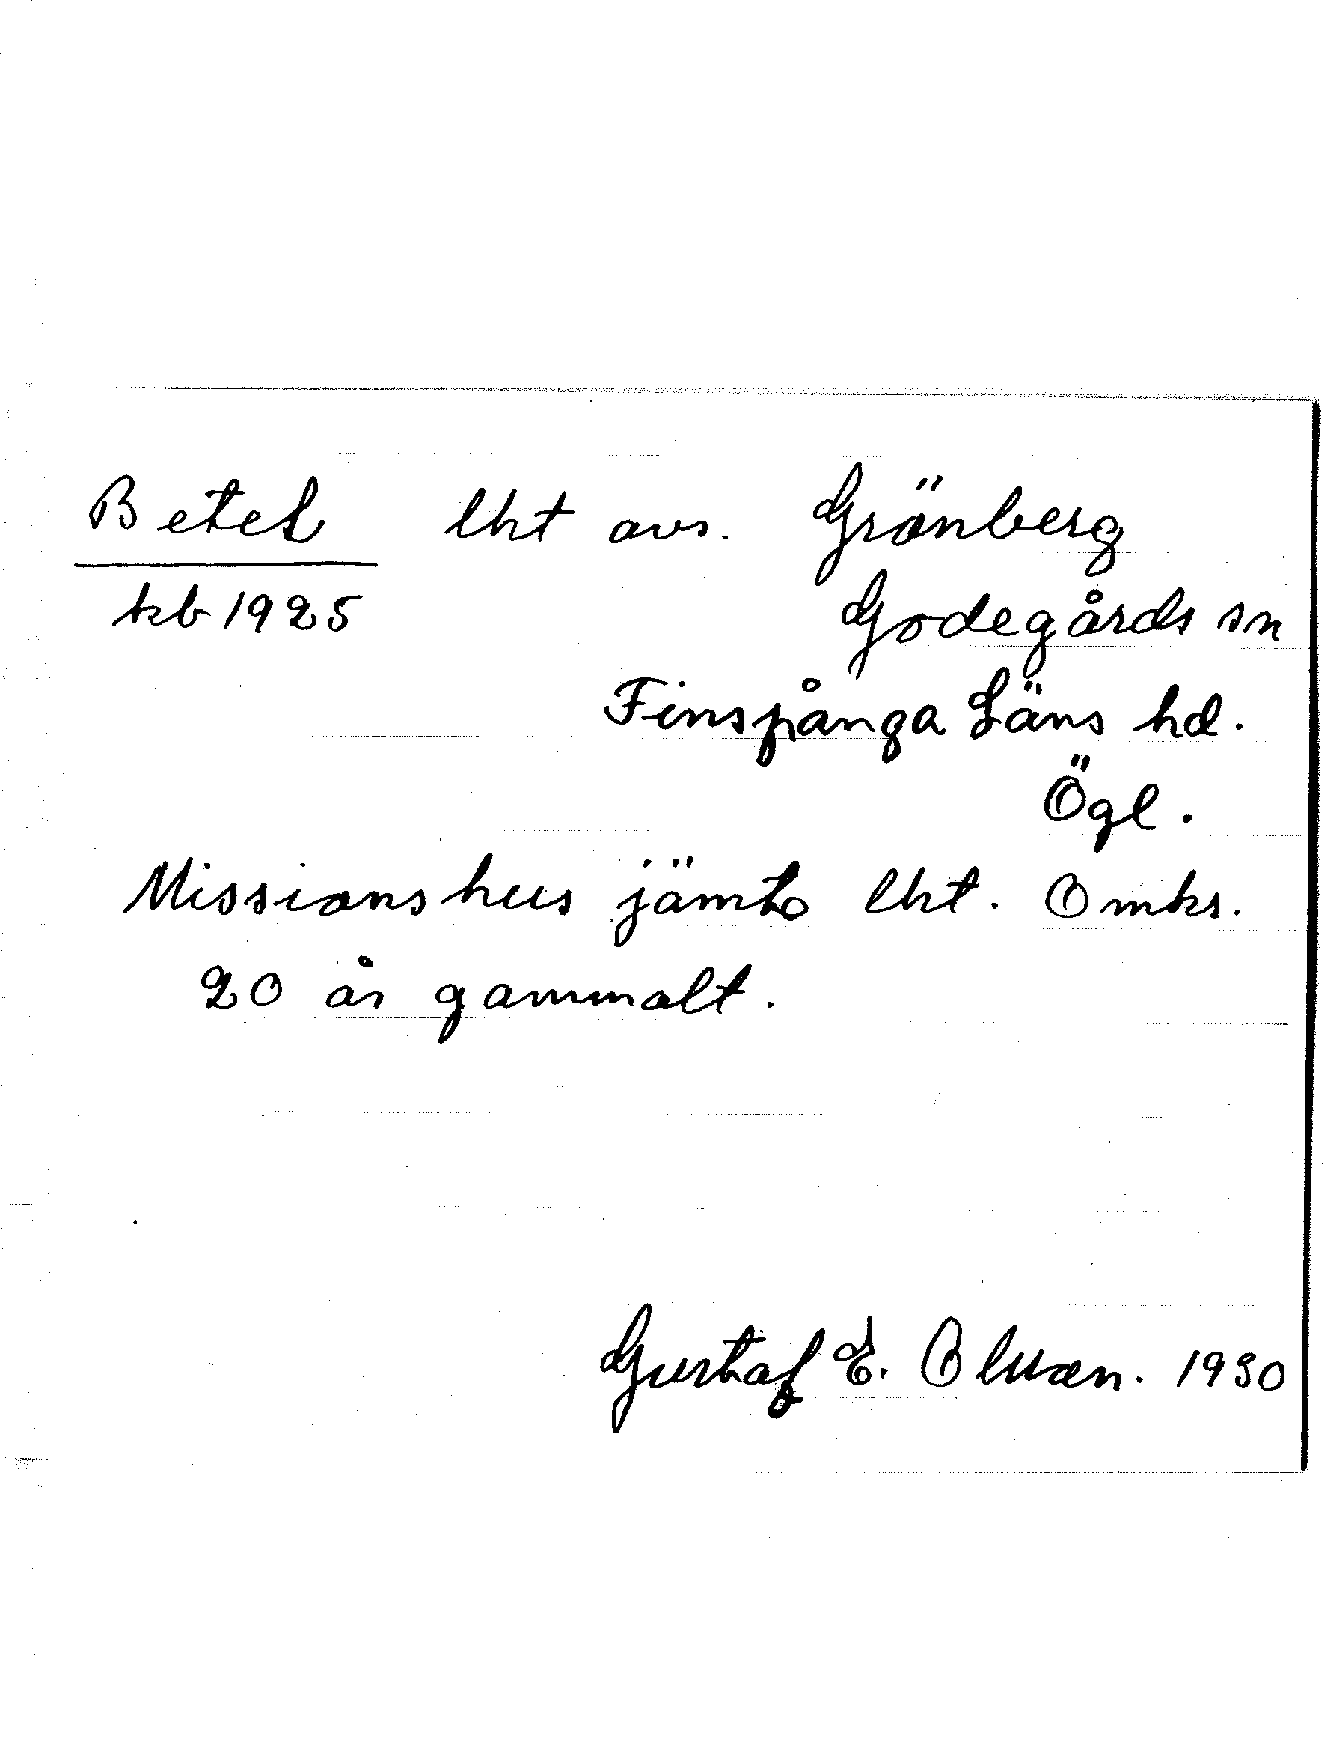 Betel lht avs. Grönberg
kb 1925 Godegårds sn
Finspånga Läns hd.
Ögl.
Missionshus jämte lht. Omkr.
20 år gammalt.
Gustaf E. 1930